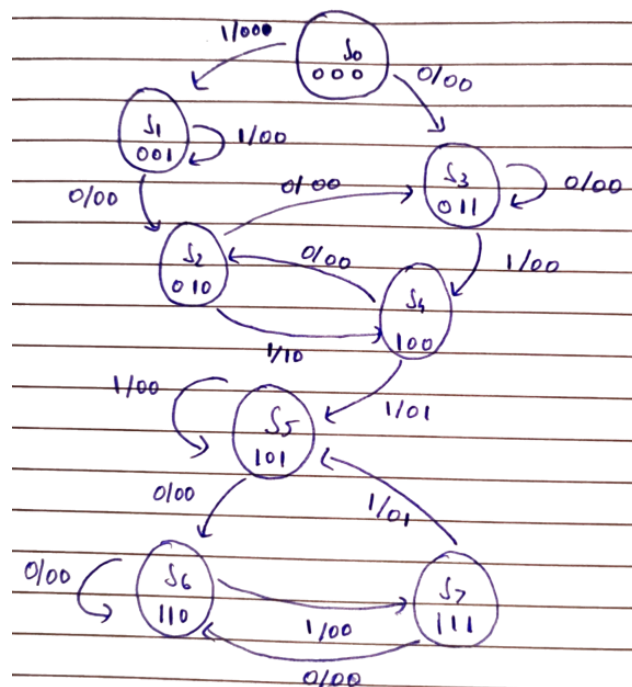 1/000
S0
000
0/00
S1
001
1/00
S3
011
0/00
0/00
0/00
S2
010
0/00
1/00
S4
100
1/10
1/00
1/01
S5
101
0/00
1/01
0/00
S6
110
1/00
S7
111
0/00